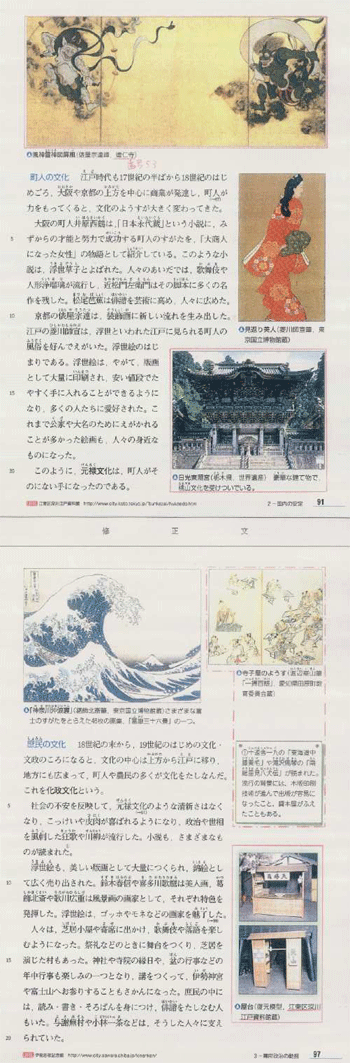 風神雷神図屏風(俵屋宗達筆 建仁寺)
町人の文化 江戸時代も17世紀の半ばから18世紀のはじ
めごろ、大阪や京都の上方を中心に商業が発達し、町人が
力をもってくると、文化のようすが大きく変わってきた。
大阪の町人井原西鶴は、「日本永代蔵」という小説に、み
ずからの才能と努力で成功する町人のすがたを、「大商人
になった女性」の物語として紹介している。このような小
説は、浮世草子とよばれた。人々のあいだでは、歌舞伎や
人形浄瑠璃が流行し、近松門左衛門はその脚本に多くの名
作を残した。松尾芭蕉は俳諧を芸術に高め、人々に広めた。
京都の俵屋宗達は、装飾画に新しい流れを生み出した。
江戸の菱川師宣は、浮世といわれた江戸に見られる町人の
風俗を好んでえがいた。浮世絵のはじ
まりである。浮世絵は、やがて、版画
として大量に印刷され、安い値段でた
やすく手に入れることができるように
なり、多くの人たちに愛好された。こ
れまで公家や大名のためにえがかれる
ことが多かった絵画も、人々の身近な
ものになった。
このように、元禄文化は、町人がそ
のにない手になったのである。
見返り美人(菱川師宣筆、東
京国立博物館蔵)
日光東照宮(栃木県、世界遺産) 豪華な建て物で、
桃山文化を受けついでいる。
5
10
15
20
91
修正文
「神奈川沖浪裏」(葛飾北斎筆、東京国立博物館蔵)さまざまな富
士のすがたをとらえた北斎の版画、「富嶽三十六景」の一つ。
寺子屋のようす(渡辺崋山筆
「一掃百態」 愛知県田原町教
育委員会蔵)
庶民の文化 18世紀の末から、19世紀のはじめの文化・
文政のころになると、文化の中心は上方から江戸に移り、
地方にも広まって、町人や農民の多くが文化をたしなんだ。
これを化政文化という。
社会の不安を反映して、元禄文化のような清新さはなく
なり、こっけいや皮肉が喜ばれるようになり、政治や世相
を風刺した狂歌や川柳が流行した。小説も、さまざまなも
のが読まれた。
浮世絵も、美しい版画として大量につくられ、錦絵とし
て広く売り出された。鈴木春信や喜多川歌麿は美人画、葛
飾北斎や歌川広重は風景の画家として、それぞれ特色を
発揮した。浮世絵は、ゴッホやモネなどの画家を魅了した。
人々は、芝居小屋や寄席に出かけ、歌舞伎や落語を楽し
むようになった。祭礼などのときに舞台をつくり、芝居を
演じた村もあった。神社や寺院の縁日や、盆の行事などの
年中行事も楽しみの一つとなり、講をつくって、伊勢神宮
や富士山へお客りすることもさかんになった。庶民の中に
は、読み・書き・そろばんを身につけ、俳諧をたしなむ人
もいた。与謝蕪村や小林一茶などは、そうした人々に支え
られていた。
①十返舎一九の「東海道中
膝栗毛」や滝沢馬琴の「南
総里見八犬伝」が読まれた。
流行の背景には、木版印刷
技術が進んで出版が容易に
なったこと、貸本屋がふえ
たこともある。
屋台(復元模型、江東区深川
江戸資料館蔵)
5
10
15
20
97